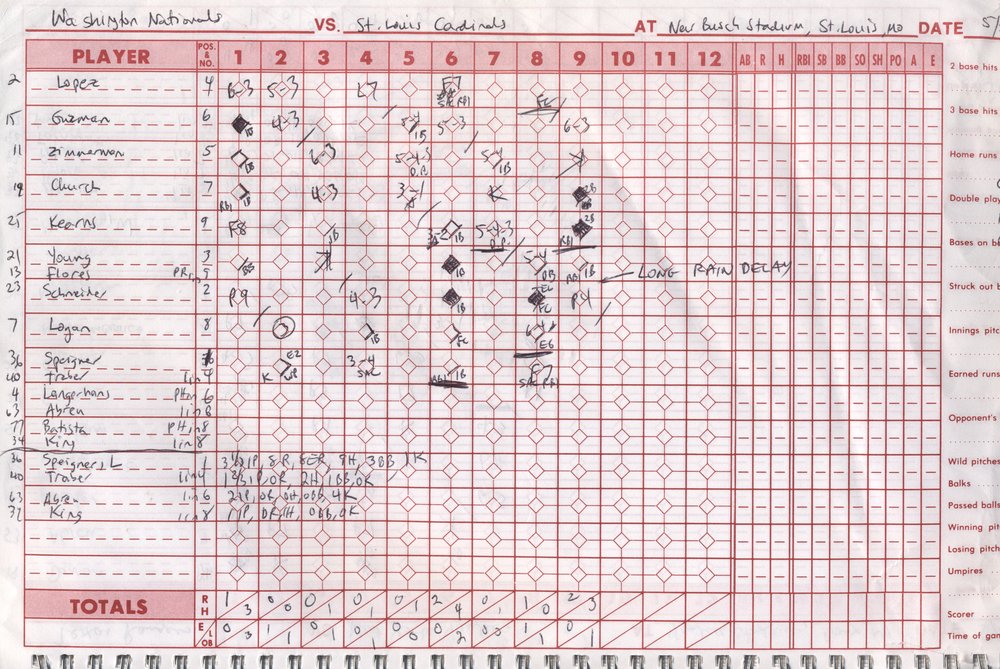 Washington Nationals VS. St. Louis Cardinals AT New Busch Stadium, St. Louis, MO DATE 5/
PLAYER POS. & NO. 1 2 3 4 5 6 7 8 9 10 11 12 AB R H RBI SB BB SO SH PO A E
2 Lopez 4 6-3 5-3 L7 F7 SAC RBI FC
15 Guzman 6 1B 4-3 5-4 1B 5-3 6-3
11 Zimmerman 5 1B 6-3 5-4-3 D.P. 5-4 1B K
19 Church 7 RBI 1B 4-3 3-1 K 2B
25 Kearns 9 F8 1B 3-2 1B 5-4-3 D.P. RBI 2B
21 Young 3 BB K 1B 5-4 BB RBI 1B
13 Flores PR LONG RAIN DELAY
23 Schneider 2 P9 4-3 1B FC P4
7 Logan 8 3 1B FC 6-4 E6
36 Speigner K E2 3-4 SAC RBI 1B F7 SAC RBI
40 Traber 1in4
4 Langerhans PHin6
63 Abreu 1in6
77 Batista PHin8
34 King 1in8
36 Speigner, L 1 3 1/3 IP, 8R, 8ER, 9H, 3BB 1K
40 Traber 1in4 1 2/3 IP, 0R, 2H, 1BB, 0K
63 Abreu 1in6 2 IP, 0R, 0H, 0BB, 4K
32 King 1in8 1 IP, 0R, 1H, 0BB, 0K
TOTALS
R H 1 3 0 0 1 0 0 1 0 1 2 4 0 1 1 0 2 3
E LOB 0 3 1 1 0 1 0 1 0 0 0 2 0 0 1 1 0 1
2 base hits
3 base hits
Home runs
Double play
Bases on b
Struck out b
Innings pitc
Earned runs
Opponent's
Wild pitches
Balks
Passed balls
Winning pit
Losing pitch
Umpires
Scorer
Time of gam